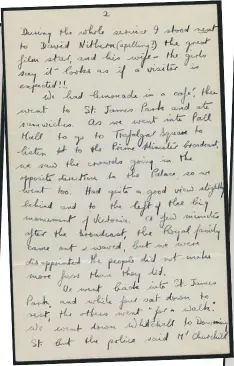 2
During the whole service I stood next
to David Nithern (spelling?) the great
film star, and his wife - the girls
say it looks as if a visitor is
expected!!
We had lemonade in a café, then
went to St. James Park and ate
sandwiches. As we went into Pall
Mall to go to Trafalgar Square to
listen to the Prime Minister broadcast,
we saw the crowds going in the
opposite direction to the Palace, so we
went too. Had quite a good view slightly
behind and to the left of the big
monument of Victoria. A few minutes
after the broadcast, the Royal family
came out & waved, but we were
disappointed the people did not make
more fuss than they did.
We went back into St. James
Park, and while four sat down to
rest, the others went "for a walk."
We went down Whitehall to Downing
St but the police said Mr Churchill